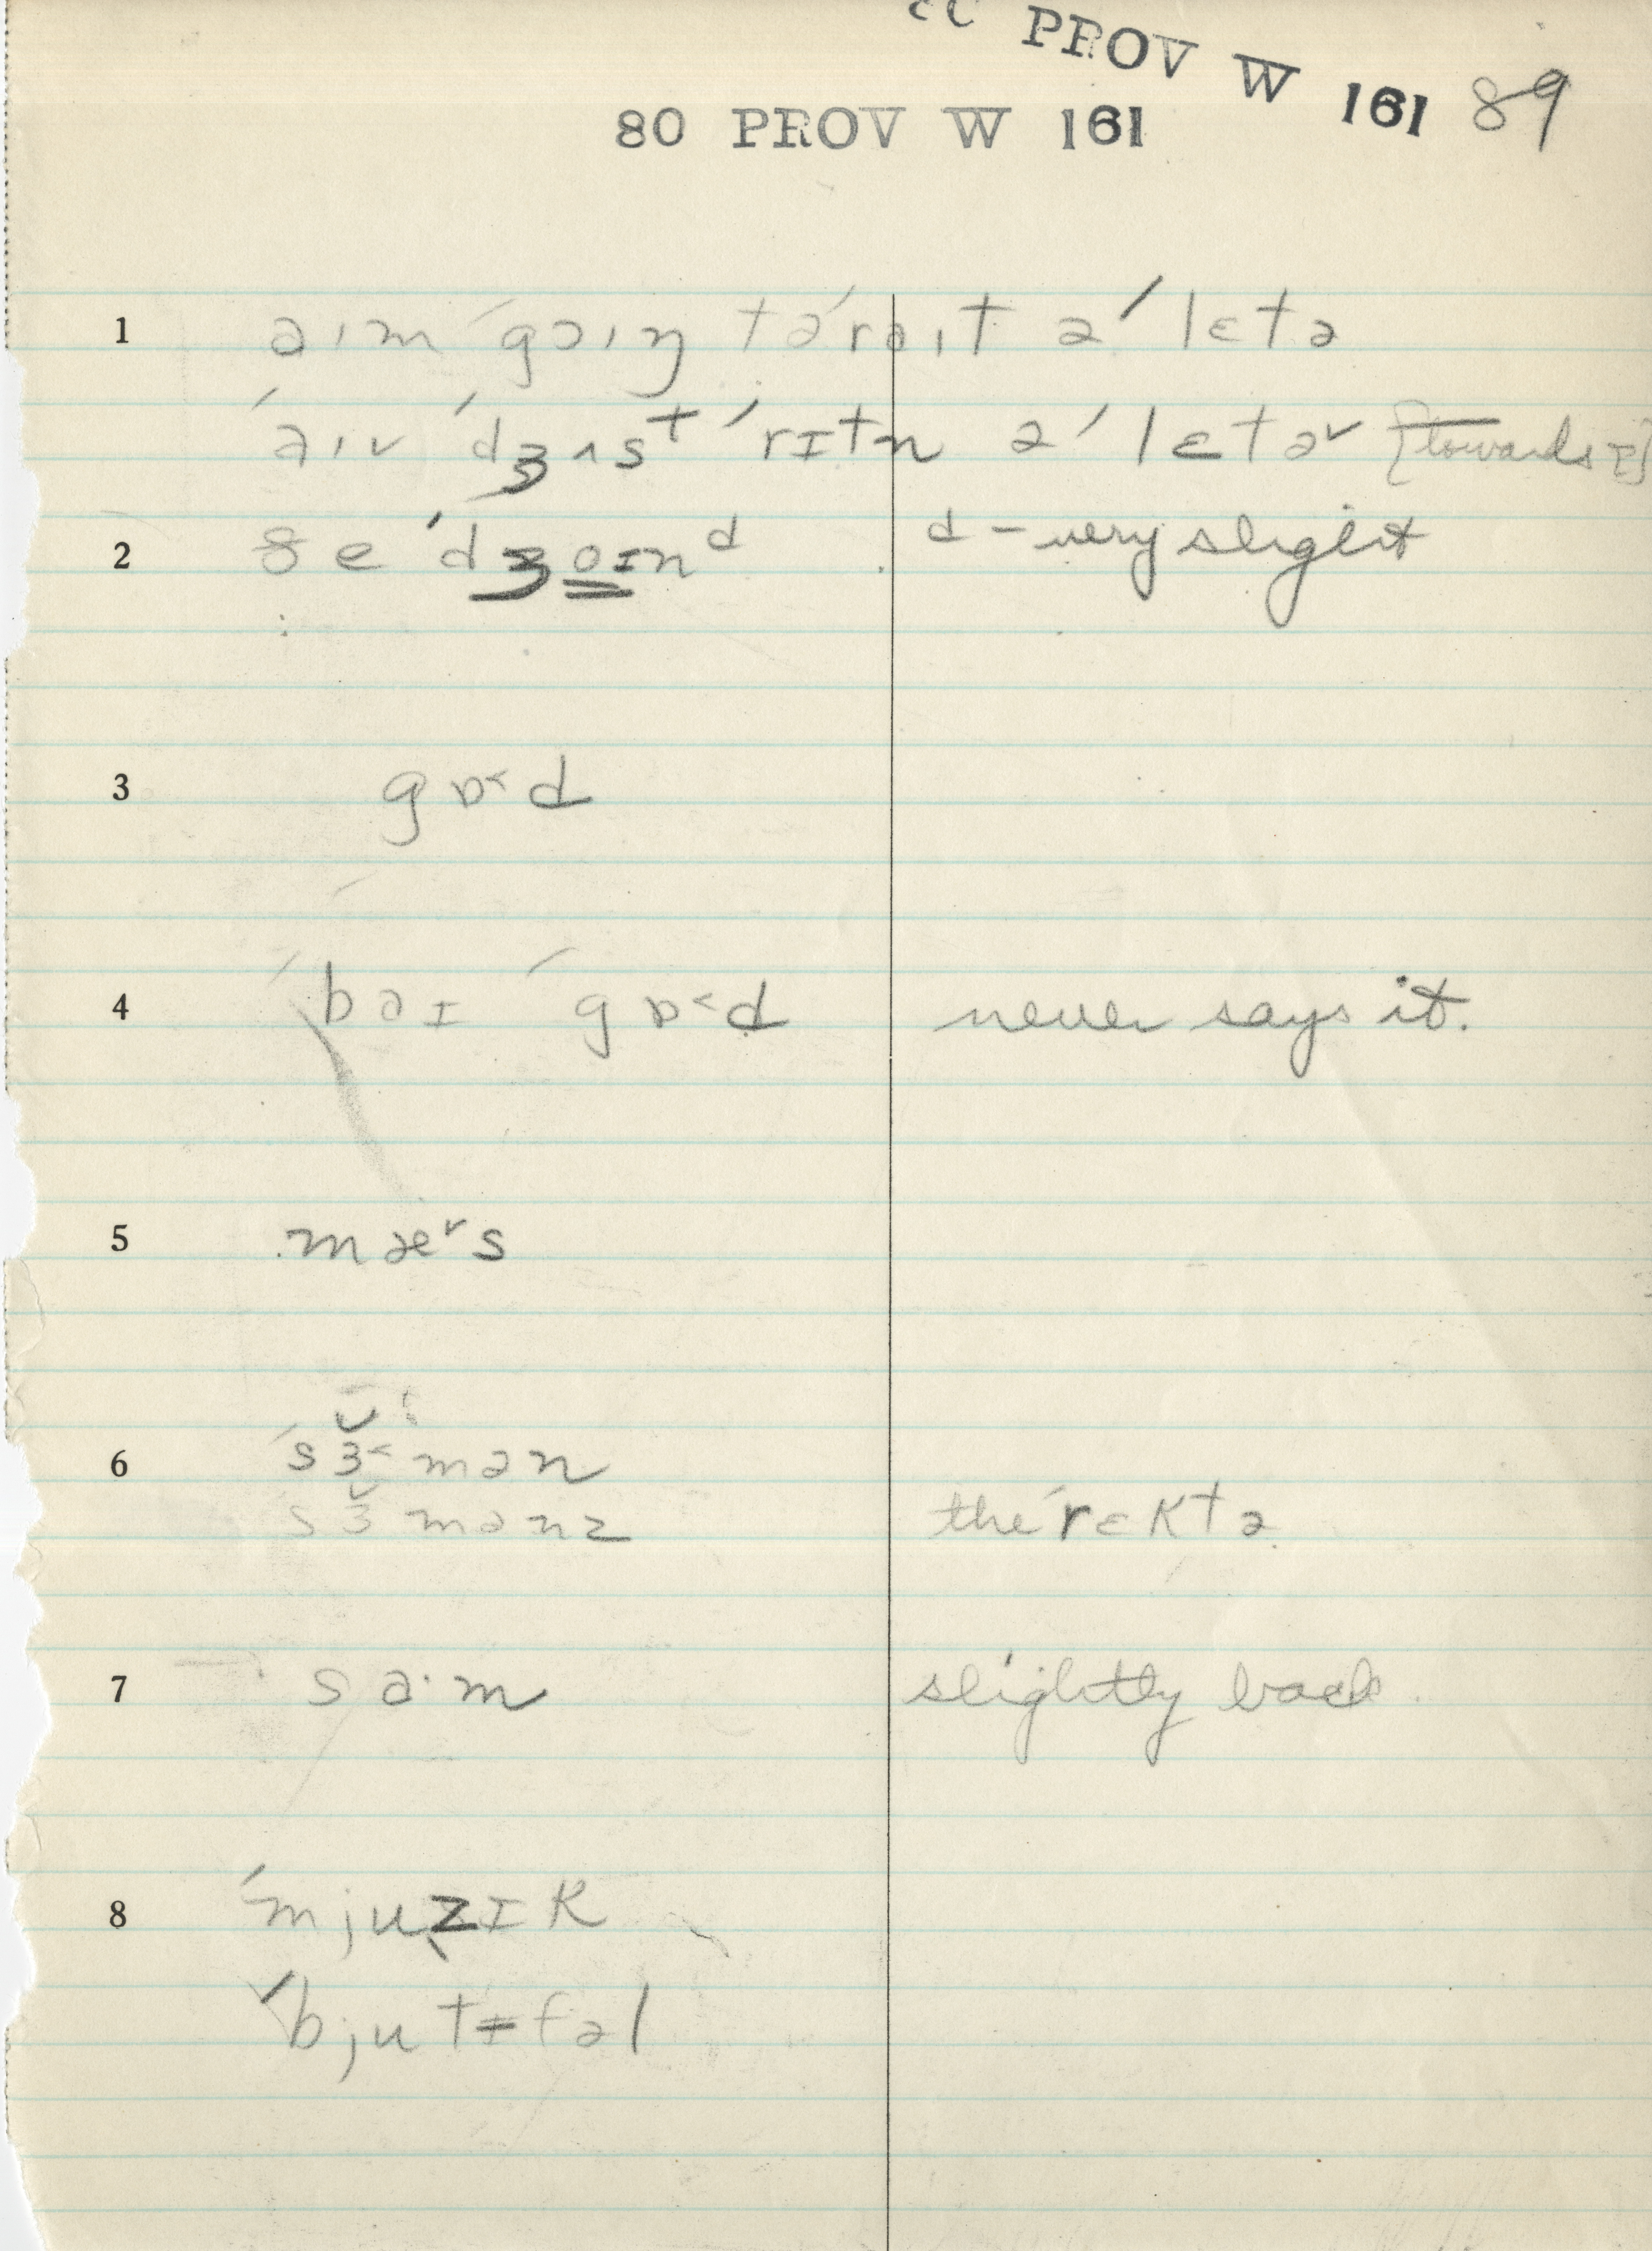 PROV W 161 89
80 PROV W 161
1 aım ˈgoıŋ təˈraıt əˈlɛtə
ˈaıv ˈdʒʌsᵗ ˈrɪtn əˈlɛtə˅ [towards
2 ðe ˈdʒoɪnᵈ d – very slight
3 gɒ˂d
4 ˈbaɪ ˈgɒ˂d never says it.
5 mæ˅s
6 ˈsɜ˂mən
sɜmənz the ˈrɛktə
7 sa·m slightly back.
8 ˈmjuzɪk
ˈbjutɪfəl